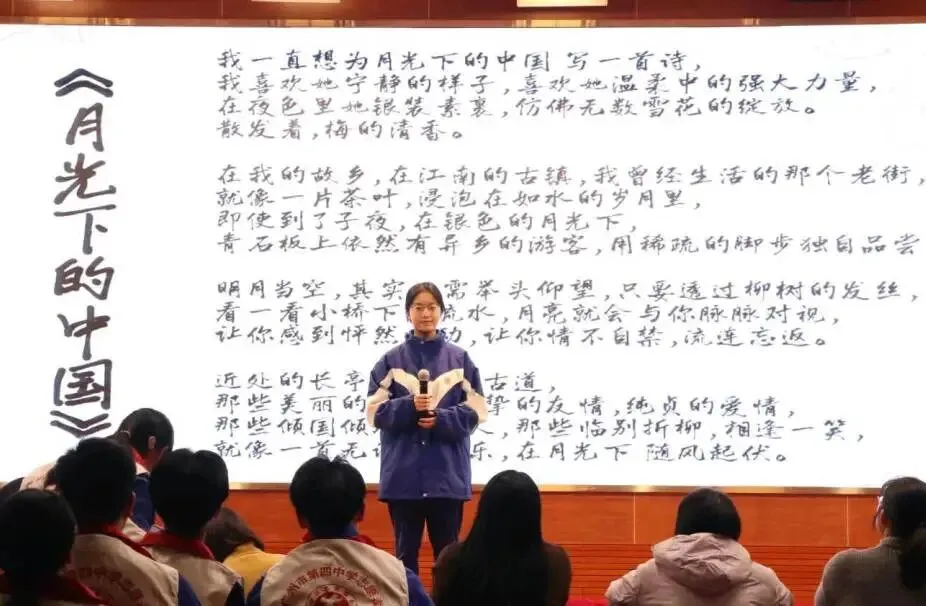 《月光下的中国》
我一直想为月光下的中国 写一首诗，
我喜欢她宁静的样子，喜欢她温柔中的强大力量，
在夜色里她银装素裹，仿佛无数雪花的绽放。
散发着，梅的清香。
在我的故乡，在江南的古镇，我曾经生活的那个老街，
就像一片茶叶，浸泡在如水的岁月里，
即使到了子夜，在银色的月光下，
青石板上依然有异乡的游客，用稀疏的脚步独自品尝
明月当空，其实 需举头仰望，只要透过柳树的发丝，
看一看小桥下 流水，月亮就会与你脉脉对视，
让你感到怦然 动，让你情不自禁，流连忘返。
近处的长亭 古道，
那些美丽的 挚的友情，纯贞的爱情，
那些倾国倾 人，那些临别折柳，相逢一笑，
就像一首无 乐，在月光下 随风起伏。
州市第四中学志愿